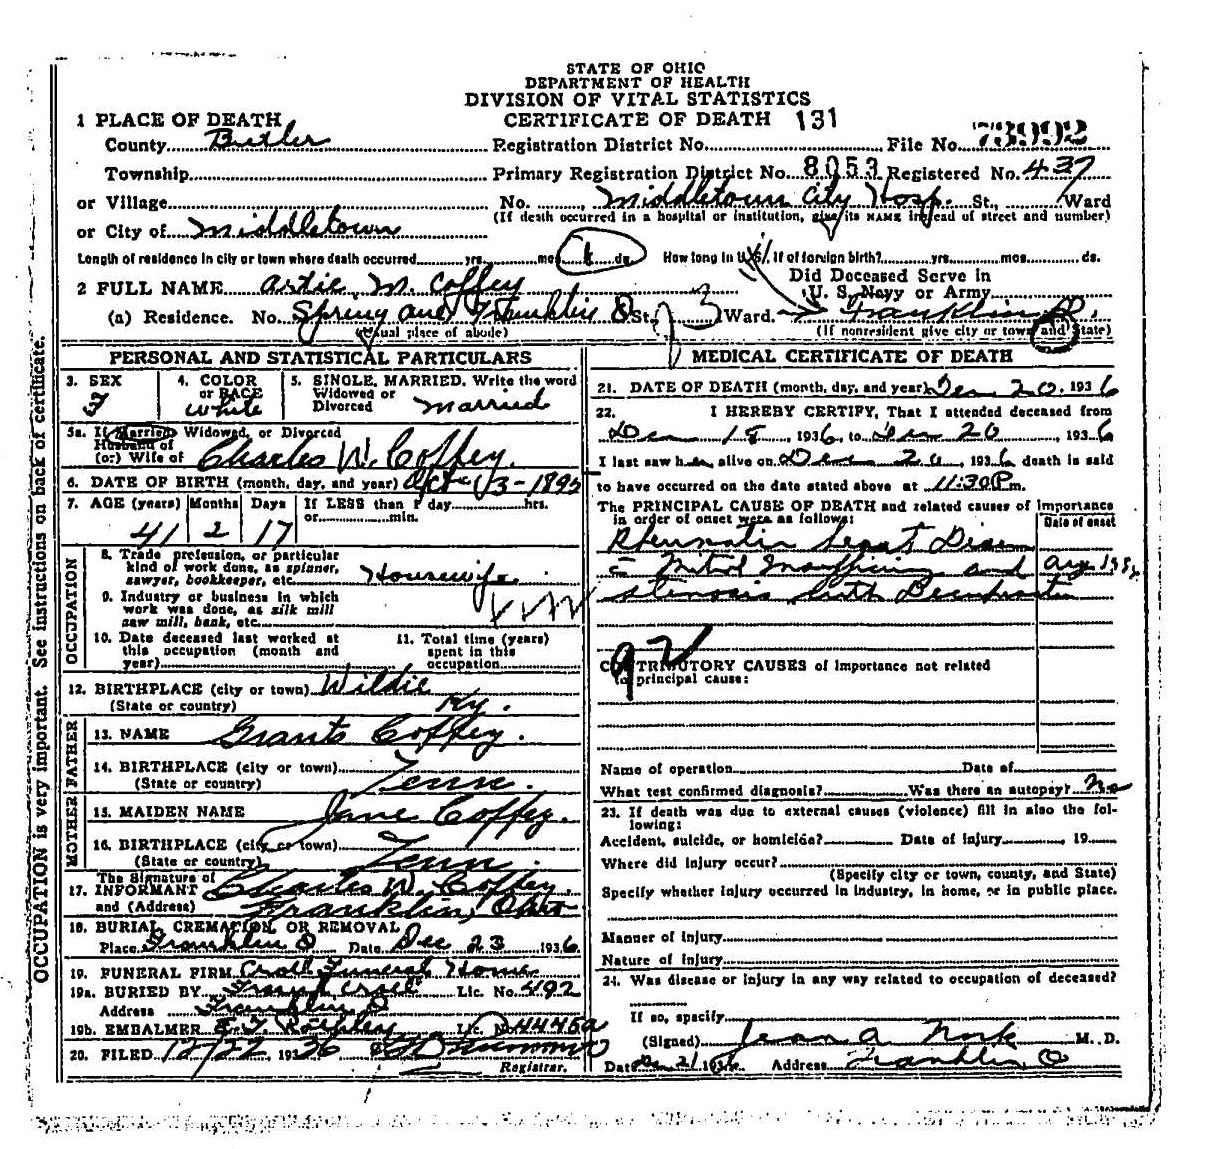 STATE OF OHIO
DEPARTMENT OF HEALTH
DIVISION OF VITAL STATISTICS
CERTIFICATE OF DEATH 131
1 PLACE OF DEATH
County Butler Registration District No. File No. 73992
Township Primary Registration District No. 8053 Registered No. 437
or Village No. Middletown City Hosp. St., Ward
(If death occurred in a hospital or institution, give its NAME instead of street and number)
or City of Middletown
Length of residence in city or town where death occurred yrs. mos. ds. How long in U.S., if of foreign birth? yrs. mos. ds.
Did Deceased Serve in
U. S. Navy or Army
2 FULL NAME Artie M. Coffey
(a) Residence. No. Spring and Franklin St., Ward. Franklin O.
(Usual place of abode) (If nonresident give city or town and State)
OCCUPATION is very important. See instructions on back of certificate.
PERSONAL AND STATISTICAL PARTICULARS
3. SEX F
4. COLOR or RACE White
5. SINGLE, MARRIED. Write the word
Widowed or
Divorced Married
5a. If Married, Widowed, or Divorced
Husband of
(or) Wife of Charles W. Coffey.
6. DATE OF BIRTH (month, day, and year) 3-1895
7. AGE (years) Months Days If LESS than 1 day hrs.
or min.
41 2 17
OCCUPATION
8. Trade, profession, or particular
kind of work done, as spinner,
sawyer, bookkeeper, etc. Housewife
9. Industry or business in which
work was done, as silk mill
saw mill, bank, etc.
10. Date deceased last worked at
this occupation (month and
year)
11. Total time (years)
spent in this
occupation
12. BIRTHPLACE (city or town) Wildie
(State or country) Ky.
FATHER
13. NAME Grant Coffey.
14. BIRTHPLACE (city or town)
(State or country) Tenn.
MOTHER
15. MAIDEN NAME Jane Coffey.
16. BIRTHPLACE (city or town)
(State or country) Tenn.
The Signature of
17. INFORMANT Charles W. Coffey.
and (Address) Franklin, Ohio
18. BURIAL, CREMATION, OR REMOVAL
Place Franklin O Date Dec 23 1936
19. FUNERAL FIRM Croll Funeral Home
19a. BURIED BY Frank Croll Lic. No. 492
Address Franklin O
19b. EMBALMER Lic. No. 4446a
20. FILED 12/22 1936
Registrar.
MEDICAL CERTIFICATE OF DEATH
21. DATE OF DEATH (month, day, and year) Dec 20, 1936
22. I HEREBY CERTIFY, That I attended deceased from
Dec 18, 1936, to Dec 20, 1936
I last saw her alive on Dec 20, 1936 death is said
to have occurred on the date stated above at 11:30 P.m.
The PRINCIPAL CAUSE OF DEATH and related causes of importance
in order of onset were as follows: Date of onset
Rheumatic Heart Disease
c Mitral Insufficiency and
stenosis with
CONTRIBUTORY CAUSES of importance not related
to principal cause:
Name of operation Date of
What test confirmed diagnosis? Was there an autopsy? No
23. If death was due to external causes (violence) fill in also the following:
Accident, suicide, or homicide? Date of injury 19
Where did injury occur?
(Specify city or town, county, and State)
Specify whether injury occurred in industry, in home, or in public place.
Manner of injury
Nature of injury
24. Was disease or injury in any way related to occupation of deceased?
If so, specify
(Signed) M. D.
Date Dec 21 1936 Address Franklin, O